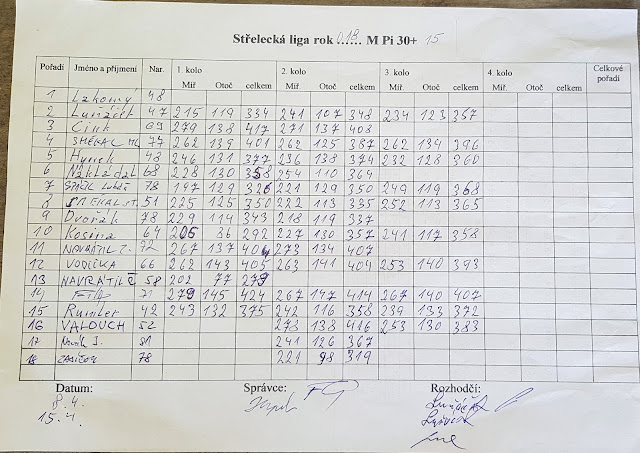 Střelecká liga rok 018 M Pi 30+ 15
Pořadí Jméno a příjmení Nar. 1. kolo 2. kolo 3. kolo 4. kolo Celkové pořadí
Míř. Otoč celkem Míř. Otoč celkem Míř. Otoč celkem Míř. Otoč celkem
1 Lakomý 48
2 47 215 119 334 241 107 348 234 123 357
3 69 279 138 417 271 137 408
4 SMÉKAL ML 77 262 139 401 262 125 387 262 134 396
5 Hynek 48 246 131 377 236 138 374 232 128 360
6 Nákladal 68 228 130 358 254 110 364
7 78 197 129 326 221 129 350 249 119 368
8 SMEKAL ST. 51 225 125 350 222 113 335 252 113 365
9 Dvořák 78 229 114 343 218 119 337
10 Kosina 64 206 86 292 227 130 357 241 117 358
11 NAVRÁTIL Z. 72 267 137 404 273 134 407
12 VODIČKA 66 262 143 405 263 141 404 253 140 393
13 NAVRÁTIL Č 58 202 77 279
14 71 279 145 424 267 147 414 267 140 407
15 Rumler 42 243 132 375 242 116 358 239 133 372
16 VALOUCH 52 278 138 416 253 130 383
17 Novák J. 51 241 126 367
18 78 221 98 319
Datum: Správce: Rozhodčí:
8.4.
15.4.